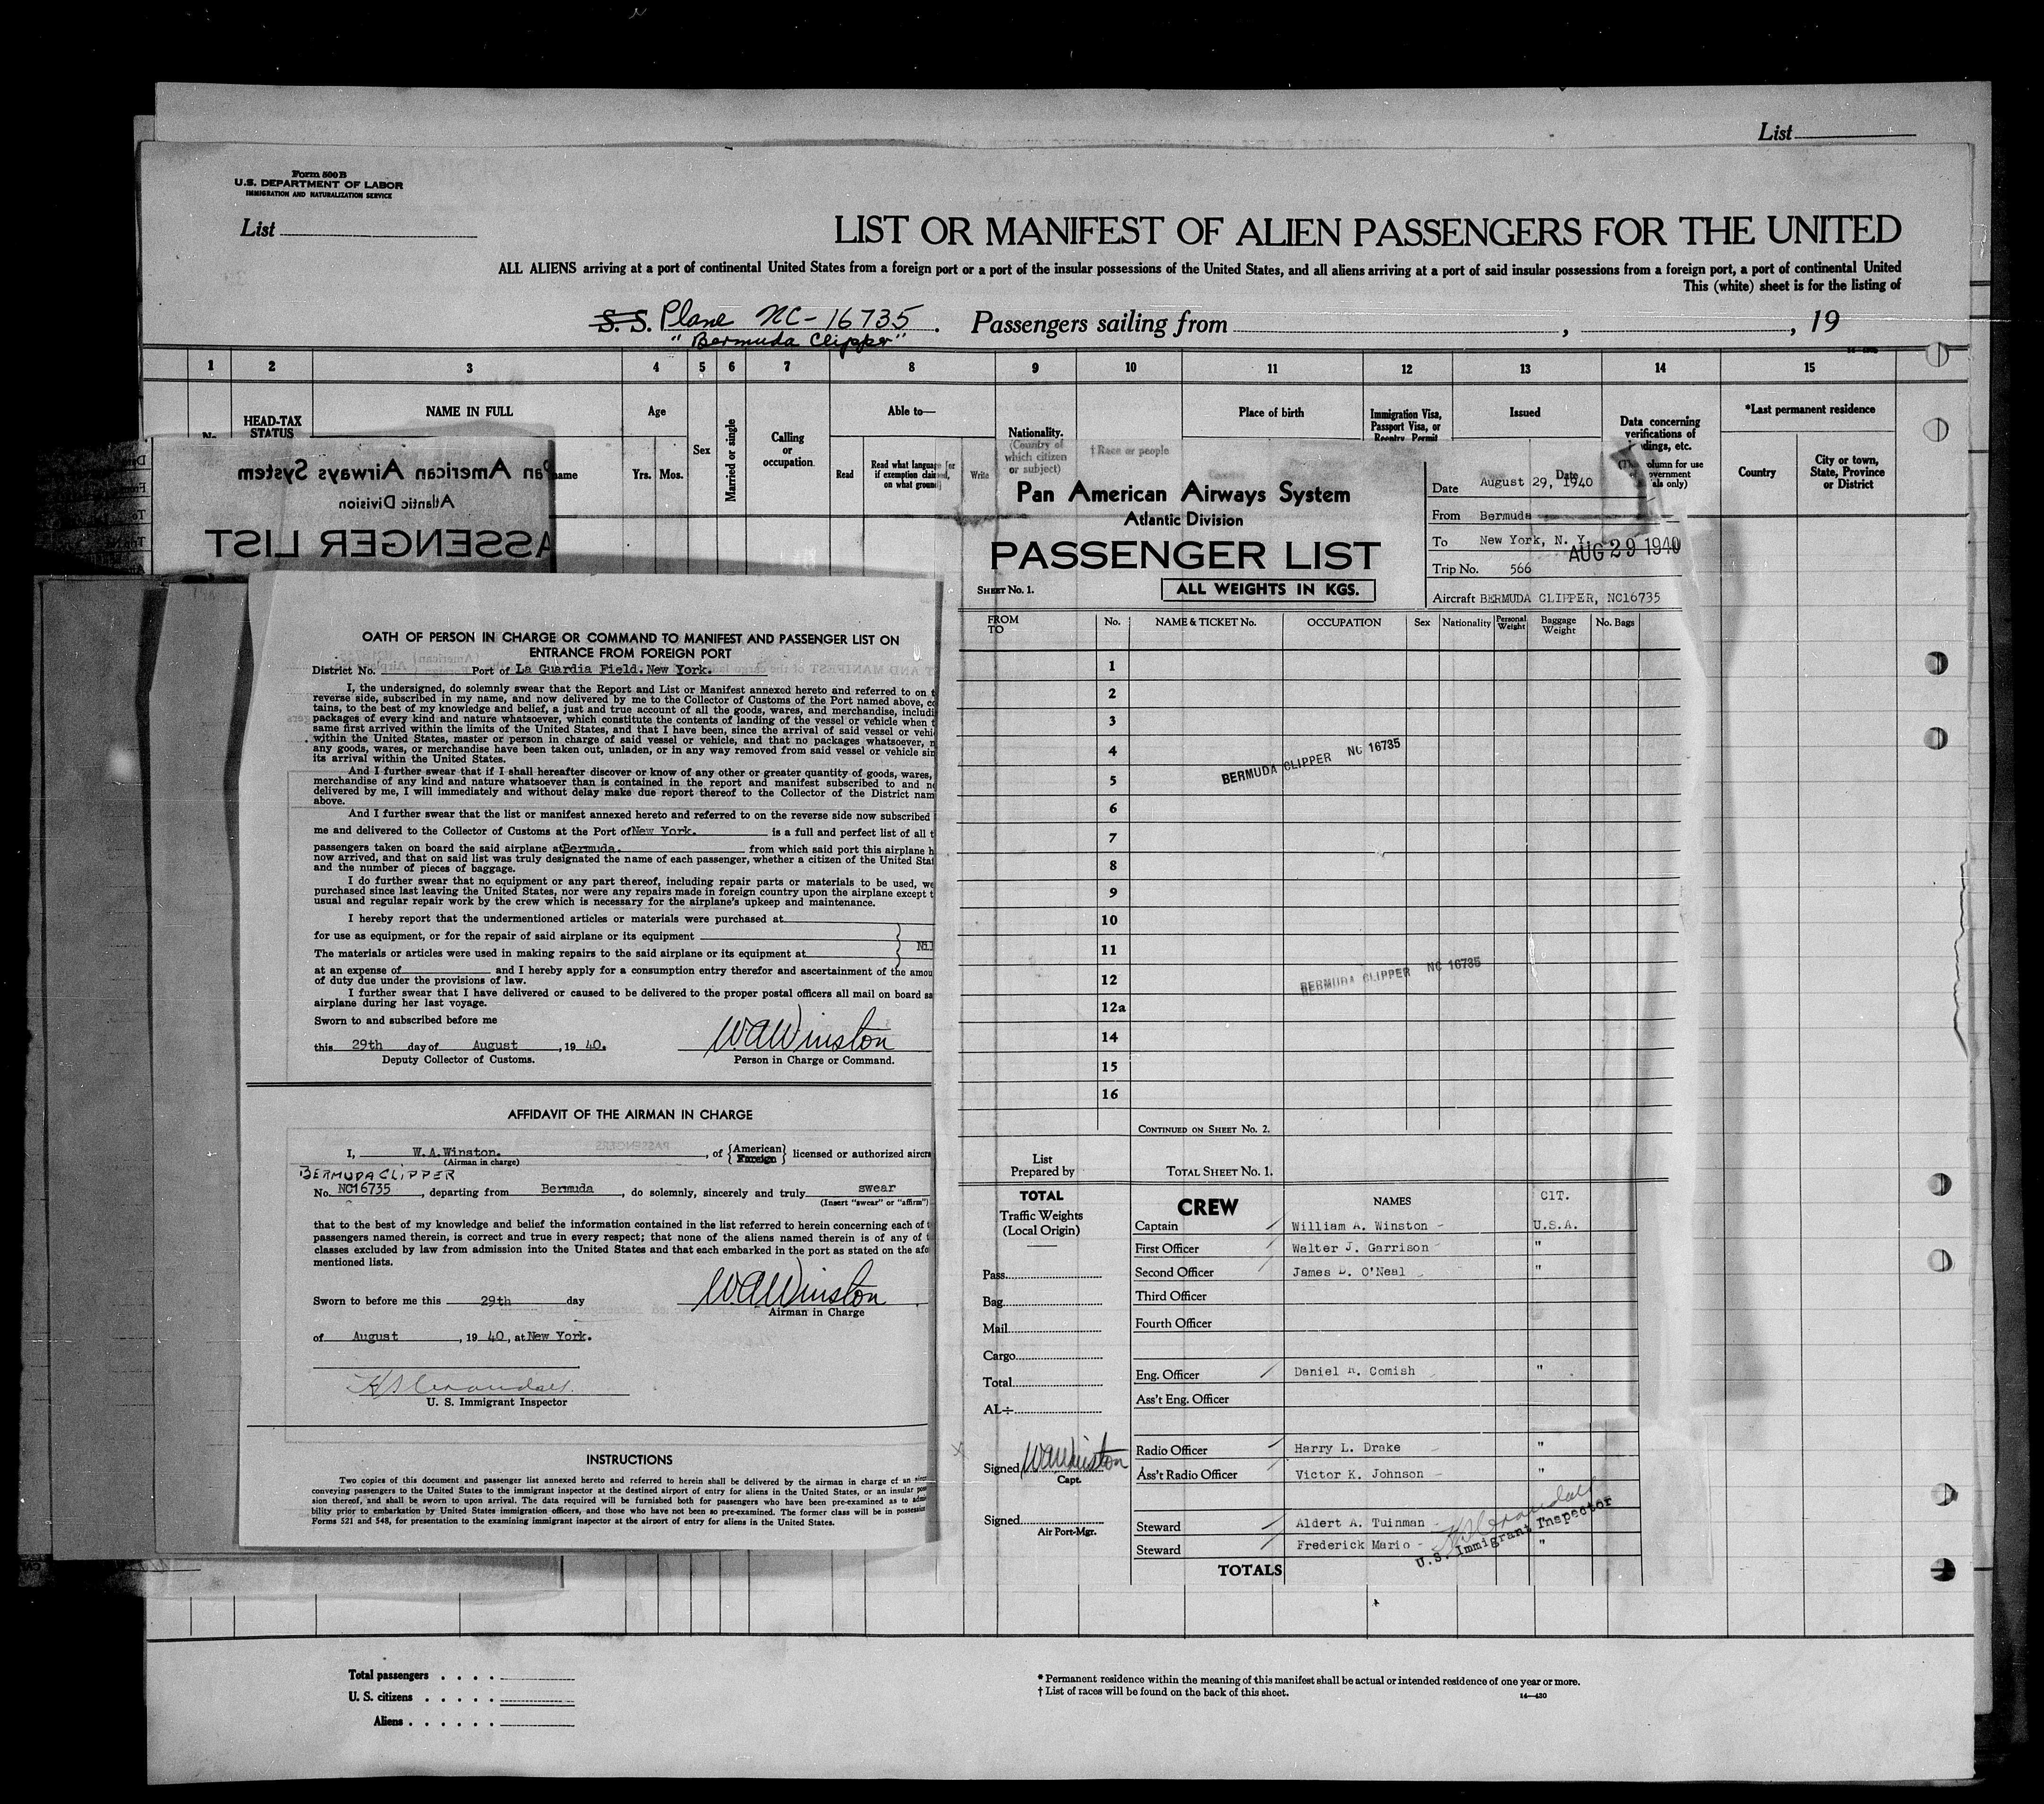 List
Form 500 B
U.S. DEPARTMENT OF LABOR
IMMIGRATION AND NATURALIZATION SERVICE
List
LIST OR MANIFEST OF ALIEN PASSENGERS FOR THE UNITED
ALL ALIENS arriving at a port of continental United States from a foreign port or a port of the insular possessions of the United States, and all aliens arriving at a port of said insular possessions from a foreign port, a port of continental United
This (white) sheet is for the listing of
S. S. Plane NC-16735. Passengers sailing from , , 19
"Bermuda Clipper"
1 2 3 4 5 6 7 8 9 10 11 12 13 14 15
HEAD-TAX STATUS
NAME IN FULL
Age
Yrs. Mos.
Sex
Married or single
Calling or occupation
Able to—
Read
Read what language [or if exemption claimed, on what ground]
Write
Nationality.
(Country of which citizen or subject)
† Race or people
Place of birth
Immigration Visa, Passport Visa, or Reentry Permit
Issued
Date
Data concerning verifications of
column for use
*Last permanent residence
Country
City or town, State, Province or District
Pan American Airways System
Atlantic Division
PASSENGER LIST
OATH OF PERSON IN CHARGE OR COMMAND TO MANIFEST AND PASSENGER LIST ON
ENTRANCE FROM FOREIGN PORT
District No. Port of La Guardia Field. New York.
I, the undersigned, do solemnly swear that the Report and List or Manifest annexed hereto and referred to on
reverse side, subscribed in my name, and now delivered by me to the Collector of Customs of the Port named above,
tains, to the best of my knowledge and belief, a just and true account of all the goods, wares, and merchandise,
packages of every kind and nature whatsoever, which constitute the contents of landing of the vessel or vehicle when
same first arrived within the limits of the United States, and that I have been, since the arrival of said vessel or
within the United States, master or person in charge of said vessel or vehicle, and that no packages whatsoever,
any goods, wares, or merchandise have been taken out, unladen, or in any way removed from said vessel or vehicle
its arrival within the United States.
And I further swear that if I shall hereafter discover or know of any other or greater quantity of goods, wares,
merchandise of any kind and nature whatsoever than is contained in the report and manifest subscribed to and
delivered by me, I will immediately and without delay make due report thereof to the Collector of the District
above.
And I further swear that the list or manifest annexed hereto and referred to on the reverse side now subscribed
me and delivered to the Collector of Customs at the Port of New York. is a full and perfect list of all
passengers taken on board the said airplane at Bermuda. from which said port this airplane
now arrived, and that on said list was truly designated the name of each passenger, whether a citizen of the United
and the number of pieces of baggage.
I do further swear that no equipment or any part thereof, including repair parts or materials to be used,
purchased since last leaving the United States, nor were any repairs made in foreign country upon the airplane except
usual and regular repair work by the crew which is necessary for the airplane's upkeep and maintenance.
I hereby report that the undermentioned articles or materials were purchased at
for use as equipment, or for the repair of said airplane or its equipment
The materials or articles were used in making repairs to the said airplane or its equipment at
at an expense of and I hereby apply for a consumption entry therefor and ascertainment of the
of duty due under the provisions of law.
I further swear that I have delivered or caused to be delivered to the proper postal officers all mail on board
airplane during her last voyage.
Sworn to and subscribed before me
this 29th day of August , 19 40.
W.A. Winston
Deputy Collector of Customs. Person in Charge or Command.
AFFIDAVIT OF THE AIRMAN IN CHARGE
I, W.A.Winston. , of {American Foreign} licensed or authorized
(Airman in charge)
BERMUDA CLIPPER
No. NC16735 , departing from Bermuda , do solemnly, sincerely and truly swear
(Insert "swear" or "affirm")
that to the best of my knowledge and belief the information contained in the list referred to herein concerning each of
passengers named therein, is correct and true in every respect; that none of the aliens named therein is of any of
classes excluded by law from admission into the United States and that each embarked in the port as stated on the
mentioned lists.
Sworn to before me this 29th day
W.A. Winston
Airman in Charge
of August , 19 40, at New York.
U. S. Immigrant Inspector
INSTRUCTIONS
Two copies of this document and passenger list annexed hereto and referred to herein shall be delivered by the airman in charge of an
conveying passengers to the United States to the immigrant inspector at the destined airport of entry for aliens in the United States, or an insular
sion thereof, and shall be sworn to upon arrival. The data required will be furnished both for passengers who have been pre-examined as to
bility prior to embarkation by United States immigration officers, and those who have not been so pre-examined. The former class will be in
Forms 521 and 548, for presentation to the examining immigrant inspector at the airport of entry for aliens in the United States.
Pan American Airways System
Atlantic Division
PASSENGER LIST
SHEET No. 1.
ALL WEIGHTS IN KGS.
Date August 29, 1940
From Bermuda
To New York, N. Y.
AUG 29 1940
Trip No. 566
Aircraft BERMUDA CLIPPER, NC16735
FROM TO No. NAME & TICKET No. OCCUPATION Sex Nationality Personal Weight Baggage Weight No. Bags
1
2
3
4
BERMUDA CLIPPER NC 16735
5
6
7
8
9
10
11
12
BERMUDA CLIPPER NC 16735
12a
14
15
16
CONTINUED ON SHEET No. 2.
List Prepared by
TOTAL SHEET No. 1.
TOTAL
Traffic Weights
(Local Origin)
Pass.
Bag.
Mail
Cargo
Total
AL÷
Signed W.A. Winston
Capt.
Signed
Air Port-Mgr.
CREW NAMES CIT.
Captain William A. Winston U.S.A.
First Officer Walter J. Garrison "
Second Officer James D. O'Neal "
Third Officer
Fourth Officer
Eng. Officer Daniel R. Comish "
Ass't Eng. Officer
Radio Officer Harry L. Drake "
Ass't Radio Officer Victor K. Johnson "
Steward Aldert A. Tuinman
Steward Frederick Mario "
U.S. Immigrant Inspector
TOTALS
Total passengers . . . .
U. S. citizens . . . . .
Aliens . . . . . .
* Permanent residence within the meaning of this manifest shall be actual or intended residence of one year or more.
† List of races will be found on the back of this sheet.
14—430